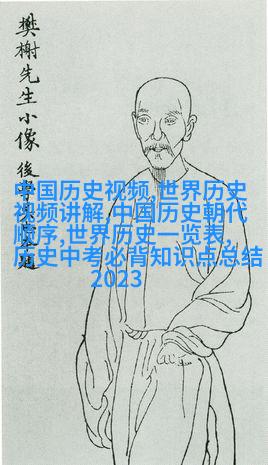 樊榭先生小像
後學
中国历史视频,世界历史
视频讲解,中国历史朝代
顺序,世界历史一览表,
历史中考必背知识点总结
2023